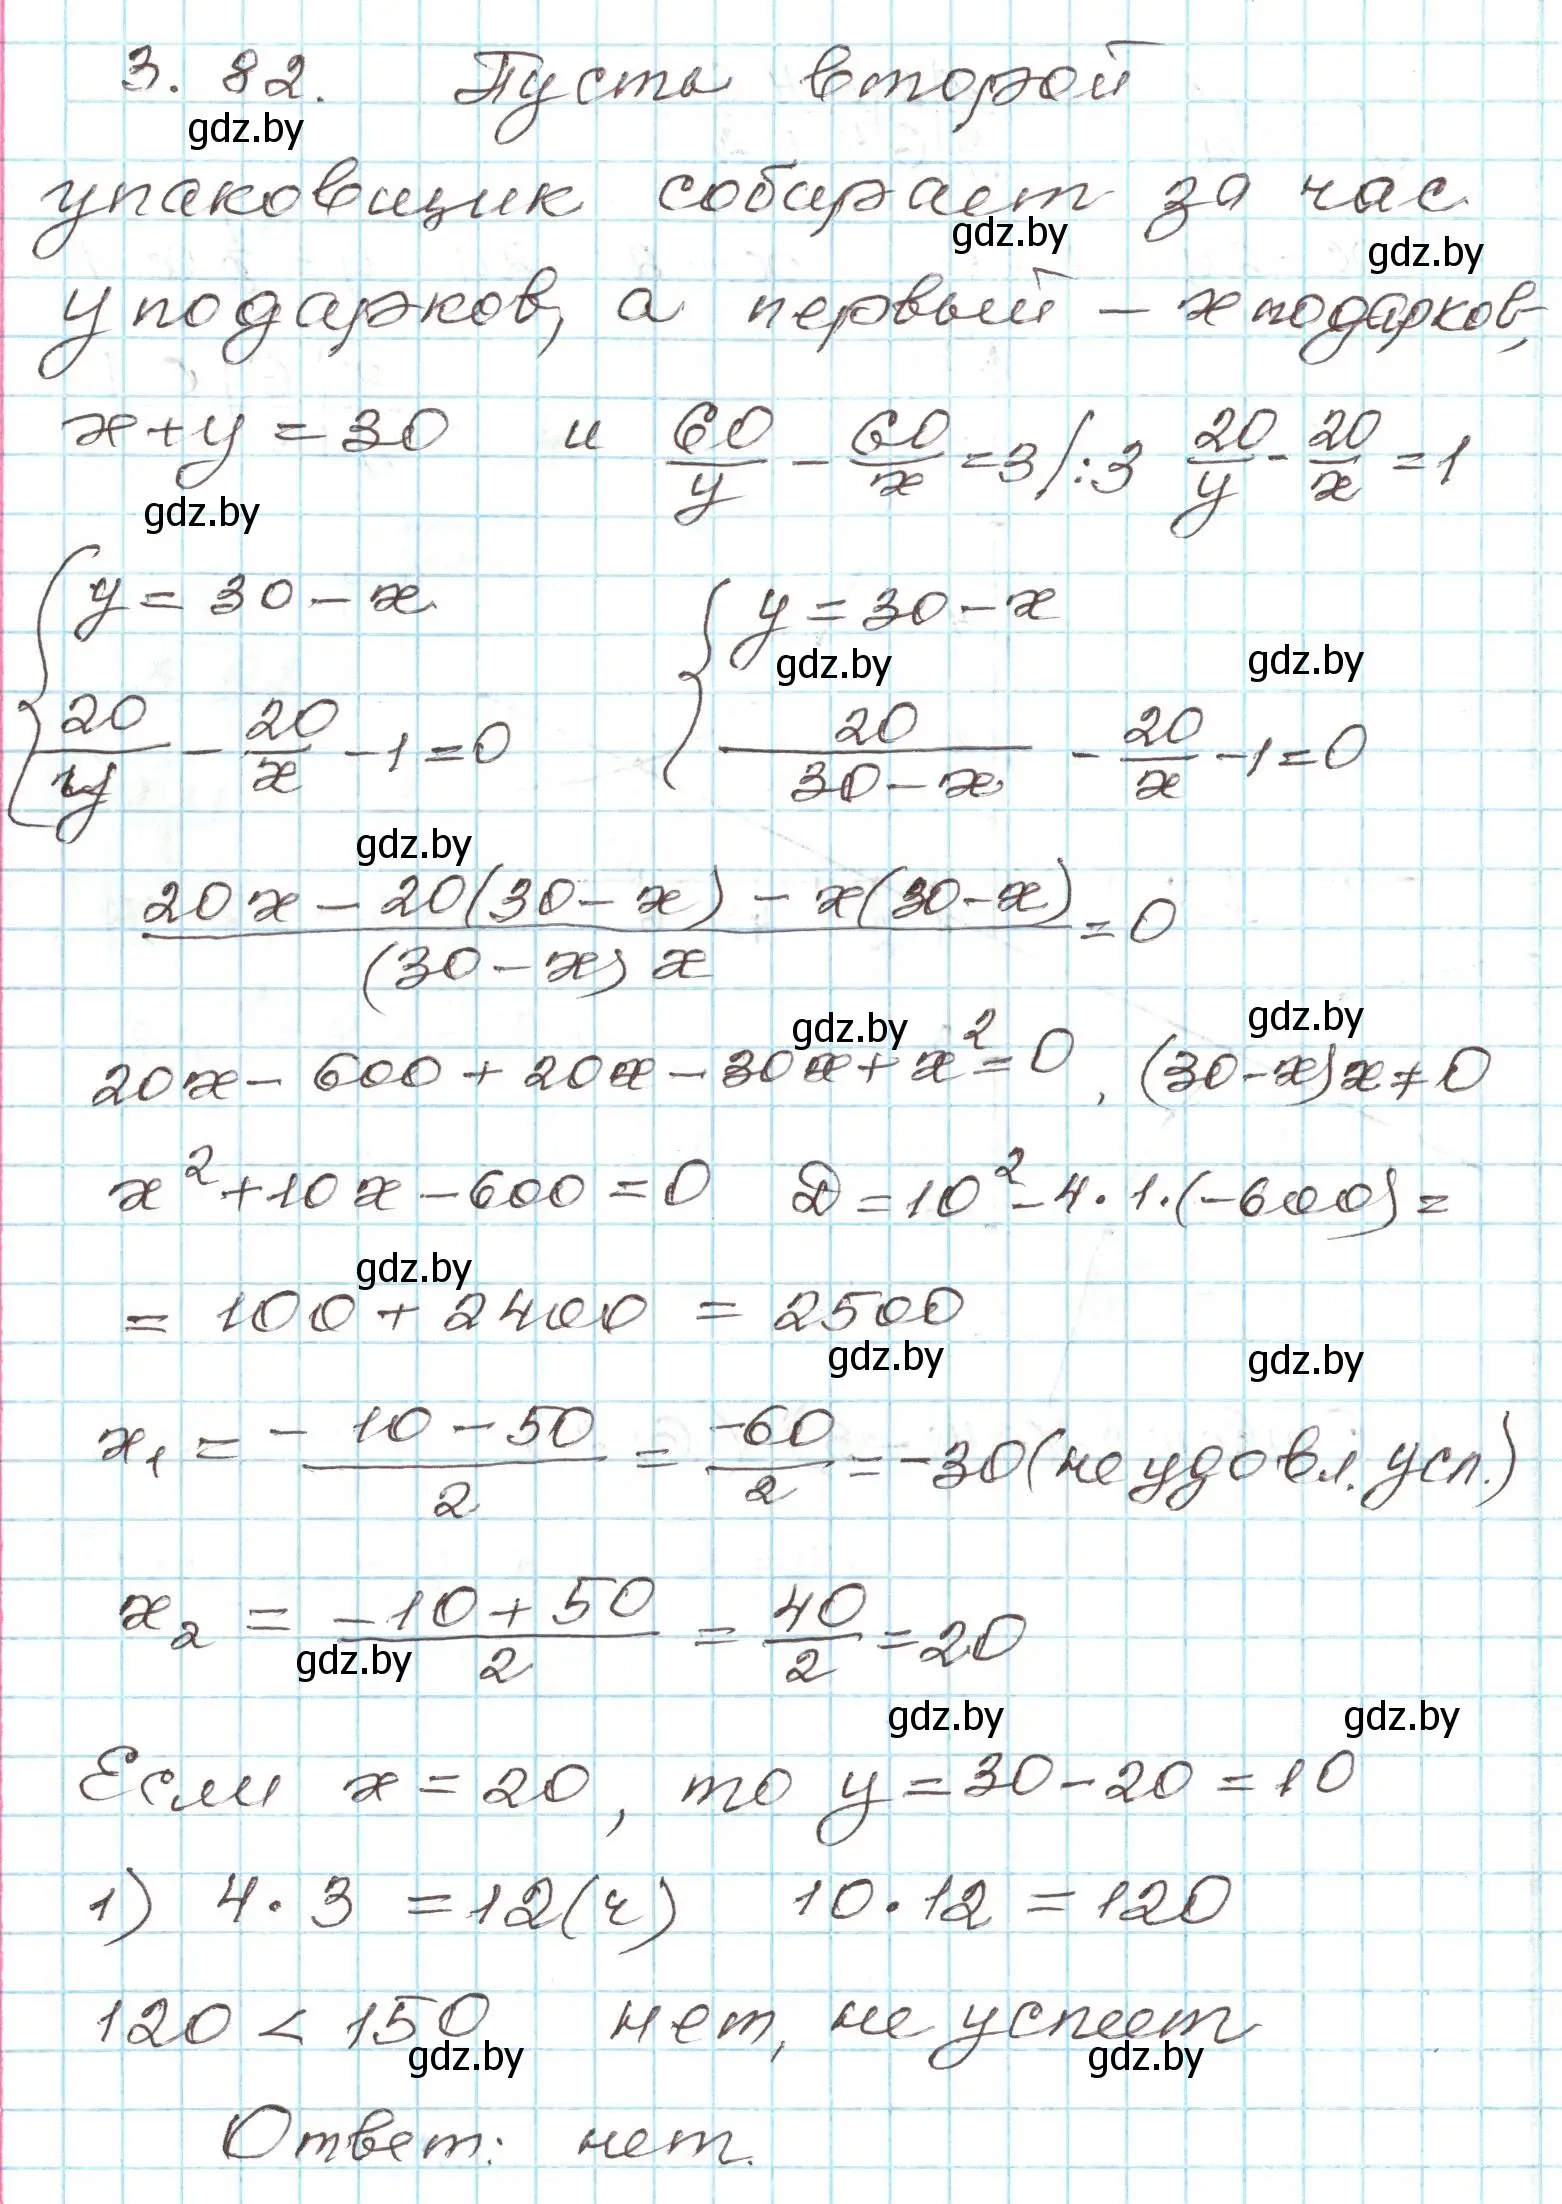 3.82. Пусть второй
gdz.by
упаковщик собирает за час
gdz.by
gdz.by
y подарков, а первый – x подарков,
x+y=30 и 60/y - 60/x =3/:3 20/y - 20/x =1
gdz.by
{ y=30-x { y=30-x
gdz.by gdz.by
20/y - 20/x -1=0 20/(30-x) - 20/x -1=0
gdz.by
(20x-20(30-x)-x(30-x))/((30-x)x) =0
gdz.by gdz.by
20x-600+20x-30x+x²=0, (30-x)x≠0
x²+10x-600=0 D=10²-4·1·(-600)=
gdz.by
=100+2400=2500
gdz.by gdz.by
x₁= (-10-50)/2 = -60/2 =-30(не удовл. усл.)
x₂= (-10+50)/2 = 40/2 =20
gdz.by
gdz.by gdz.by
Если x=20, то y=30-20=10
1) 4·3=12(ч) 10·12=120
120<150 нет, не успеет
gdz.by gdz.by
Ответ: нет.